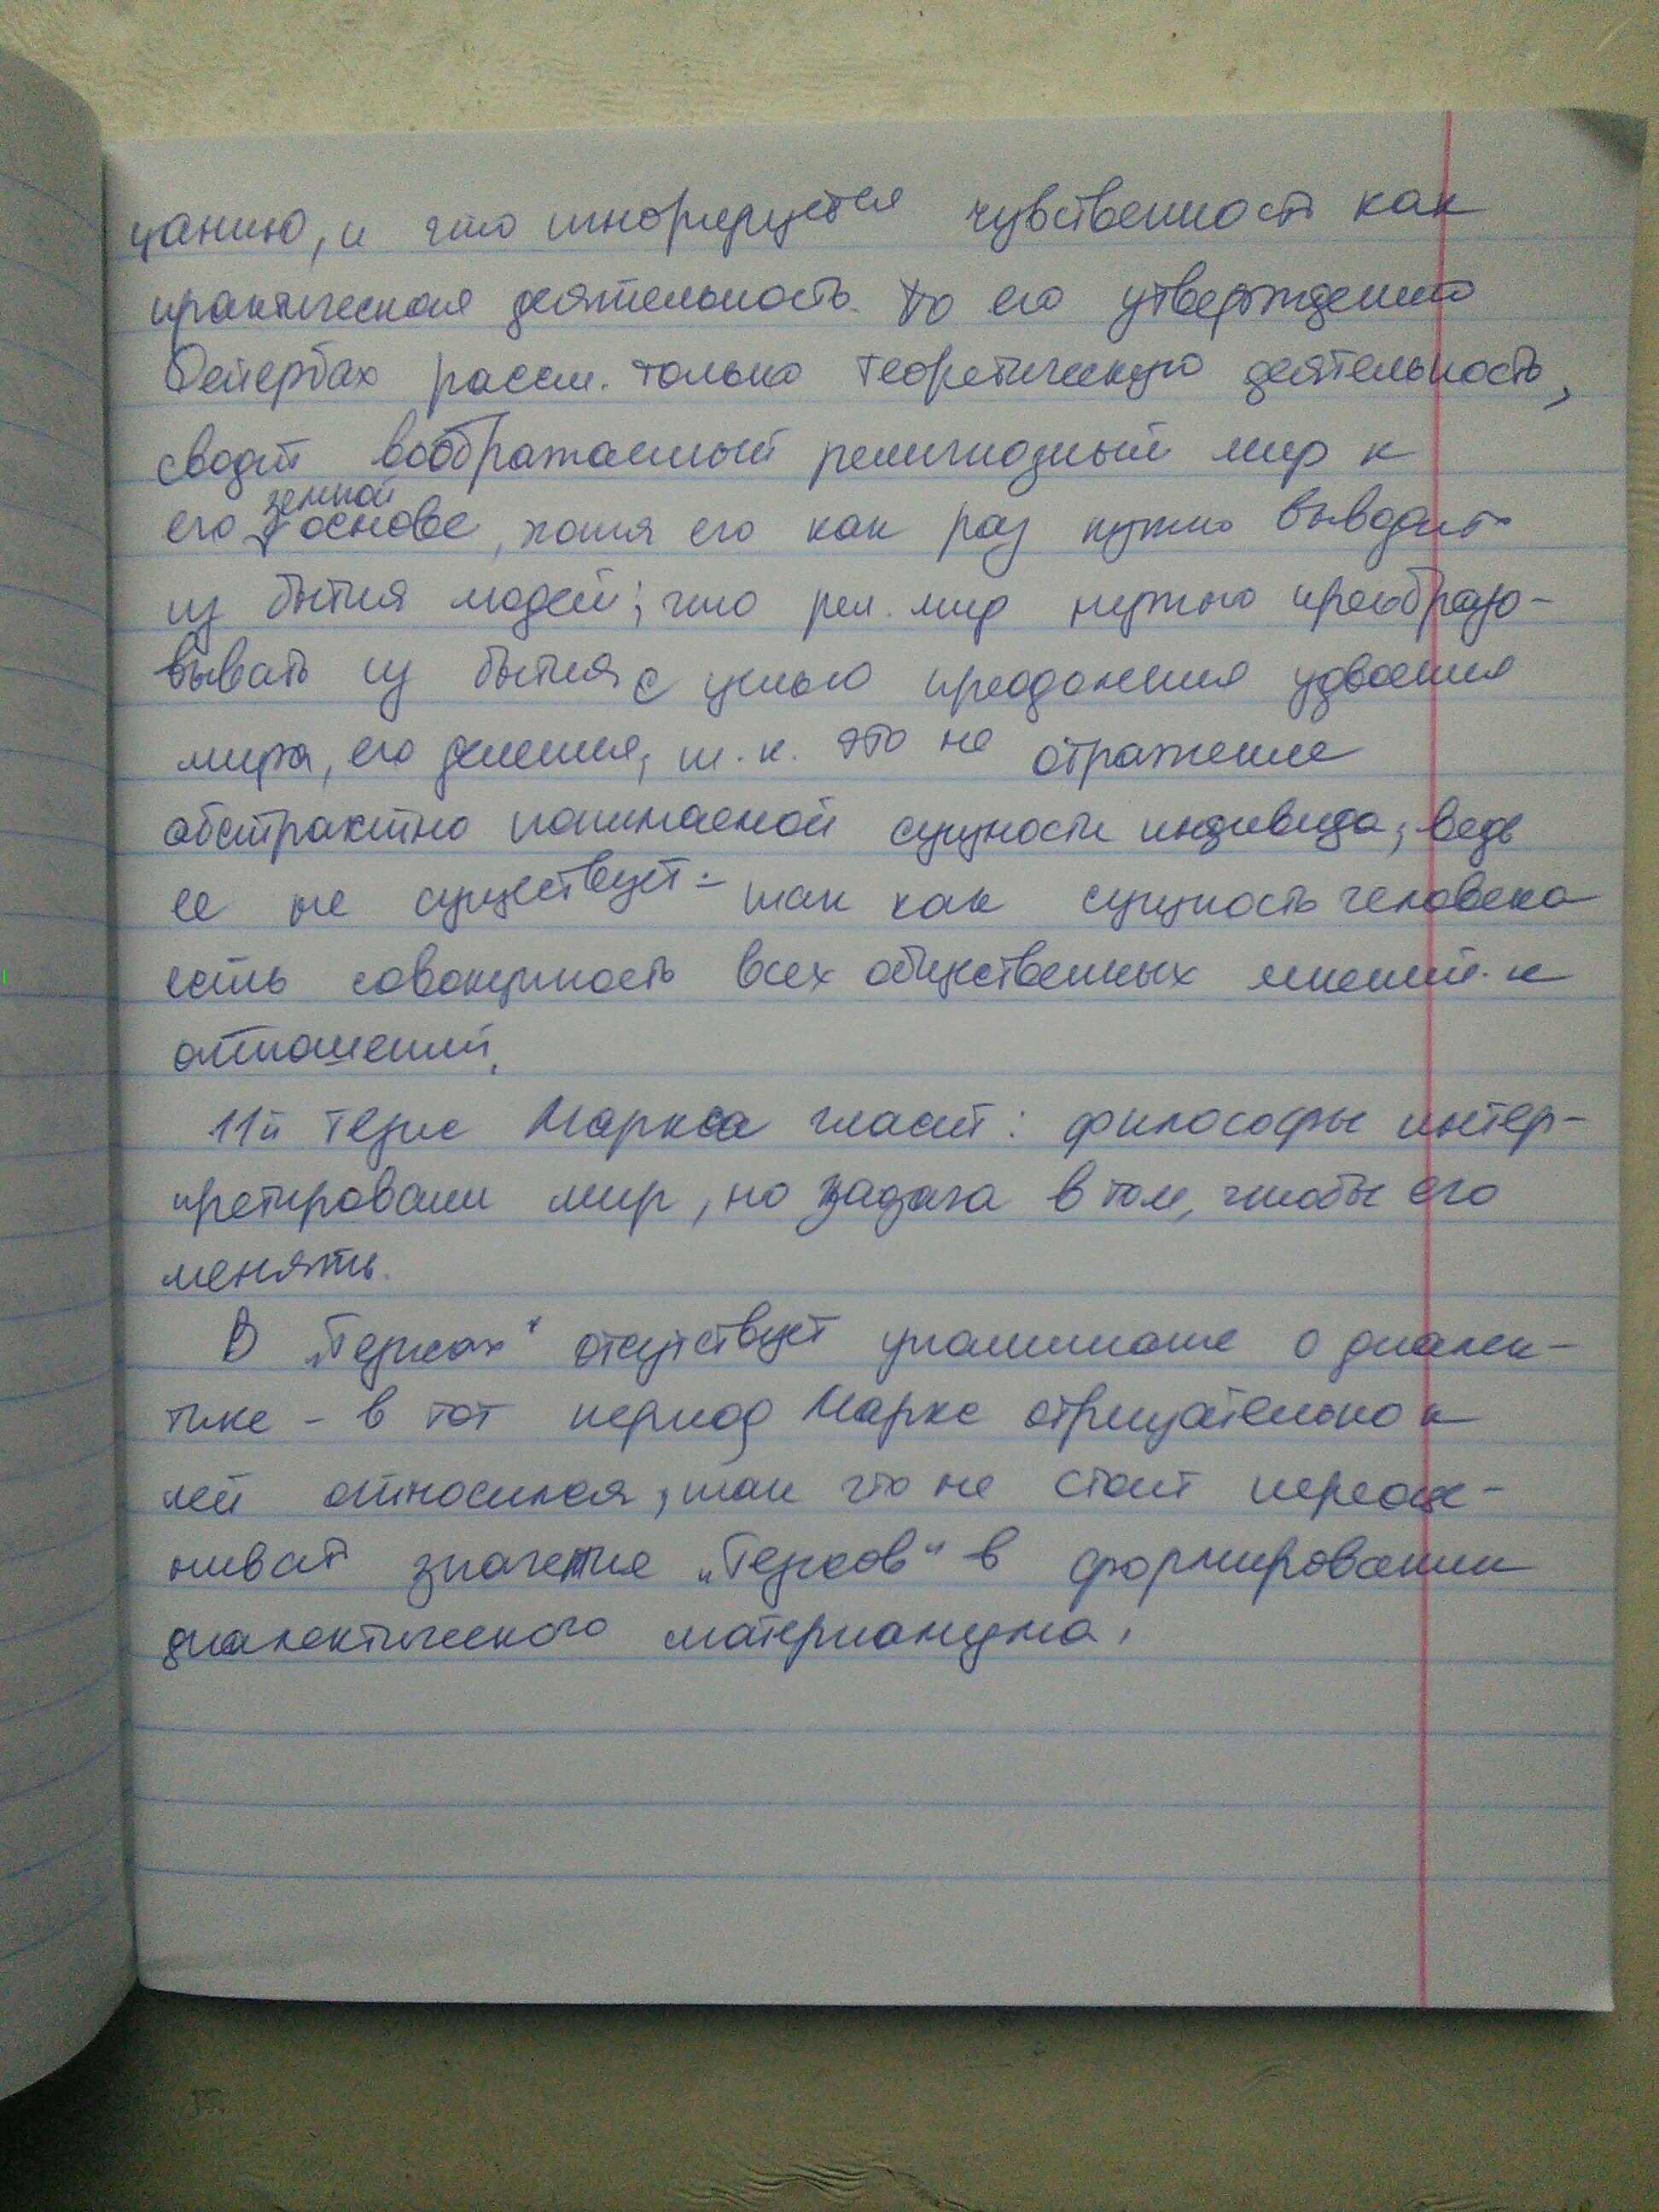 цанию, и что игнорируется чувственность как
практическая деятельность. По его утверждению
Фейербах рассм. только теоретическую деятельность,
сводит воображаемый религиозный мир к
его земной основе, хотя его как раз нужно выводить
из бытия людей; что рел. мир нужно преобразо-
вывать из бытия с целью преодоления удвоения
мира, его деления, т.к. это не отражение
абстрактно понимаемой сущности индивида, ведь
ее не существует - так как сущность человека
есть совокупность всех общественных мнений и
отношений.
11й тезис Маркса гласит: философы интер-
претировали мир, но задача в том, чтобы его
менять.
В „Тезисах“ отсутствует упоминание о диалек-
тике - в тот период Маркс отрицательно к
ней относился, так что не стоит переоце-
нивать значение „Тезисов“ в формировании
диалектического материализма.